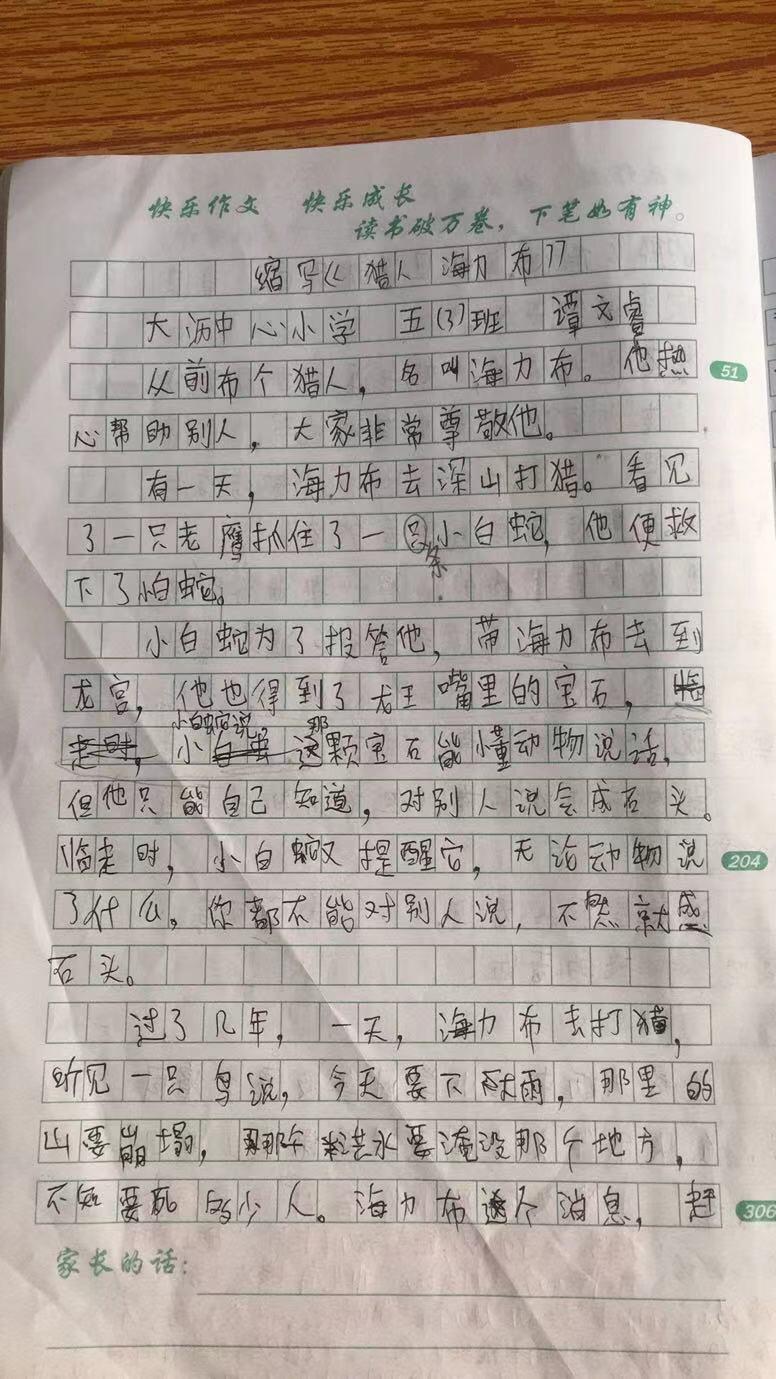 快乐作文 快乐成长
读书破万卷，下笔如有神。
缩写《猎人海力布》
大沥中心小学 五(3)班 谭文睿
从前布个猎人，名叫海力布。他热
51
心帮助别人，大家非常尊敬他。
有一天，海力布去深山打猎。看见
了一只老鹰抓住了一条小白蛇，他便救
下了小白蛇。
小白蛇为了报答他，带海力布去到
龙宫，他也得到了龙王嘴里的宝石，
小白蛇说那颗宝石能懂动物说话，
但他只能自己知道，对别人说会成石头。
临走时，小白蛇又提醒它，无论动物说
204
了什么。你都不能对别人说，不然就成
石头。
过了几年，一天，海力布去打猎，
听见一只鸟说，今天要下大雨，那里的
山要崩塌，洪水要淹没那个地方，
不知要死多少人。海力布 消息，赶
306
家长的话：